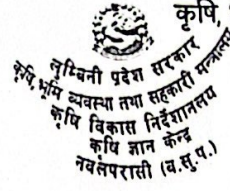 कृषि,
लुम्बिनी प्रदेश सरकार
कृषि, भूमि व्यवस्था तथा सहकारी मन्त्रालय
कृषि विकास निर्देशनालय
कृषि ज्ञान केन्द्र
नवलपरासी (ब.सु.प.)